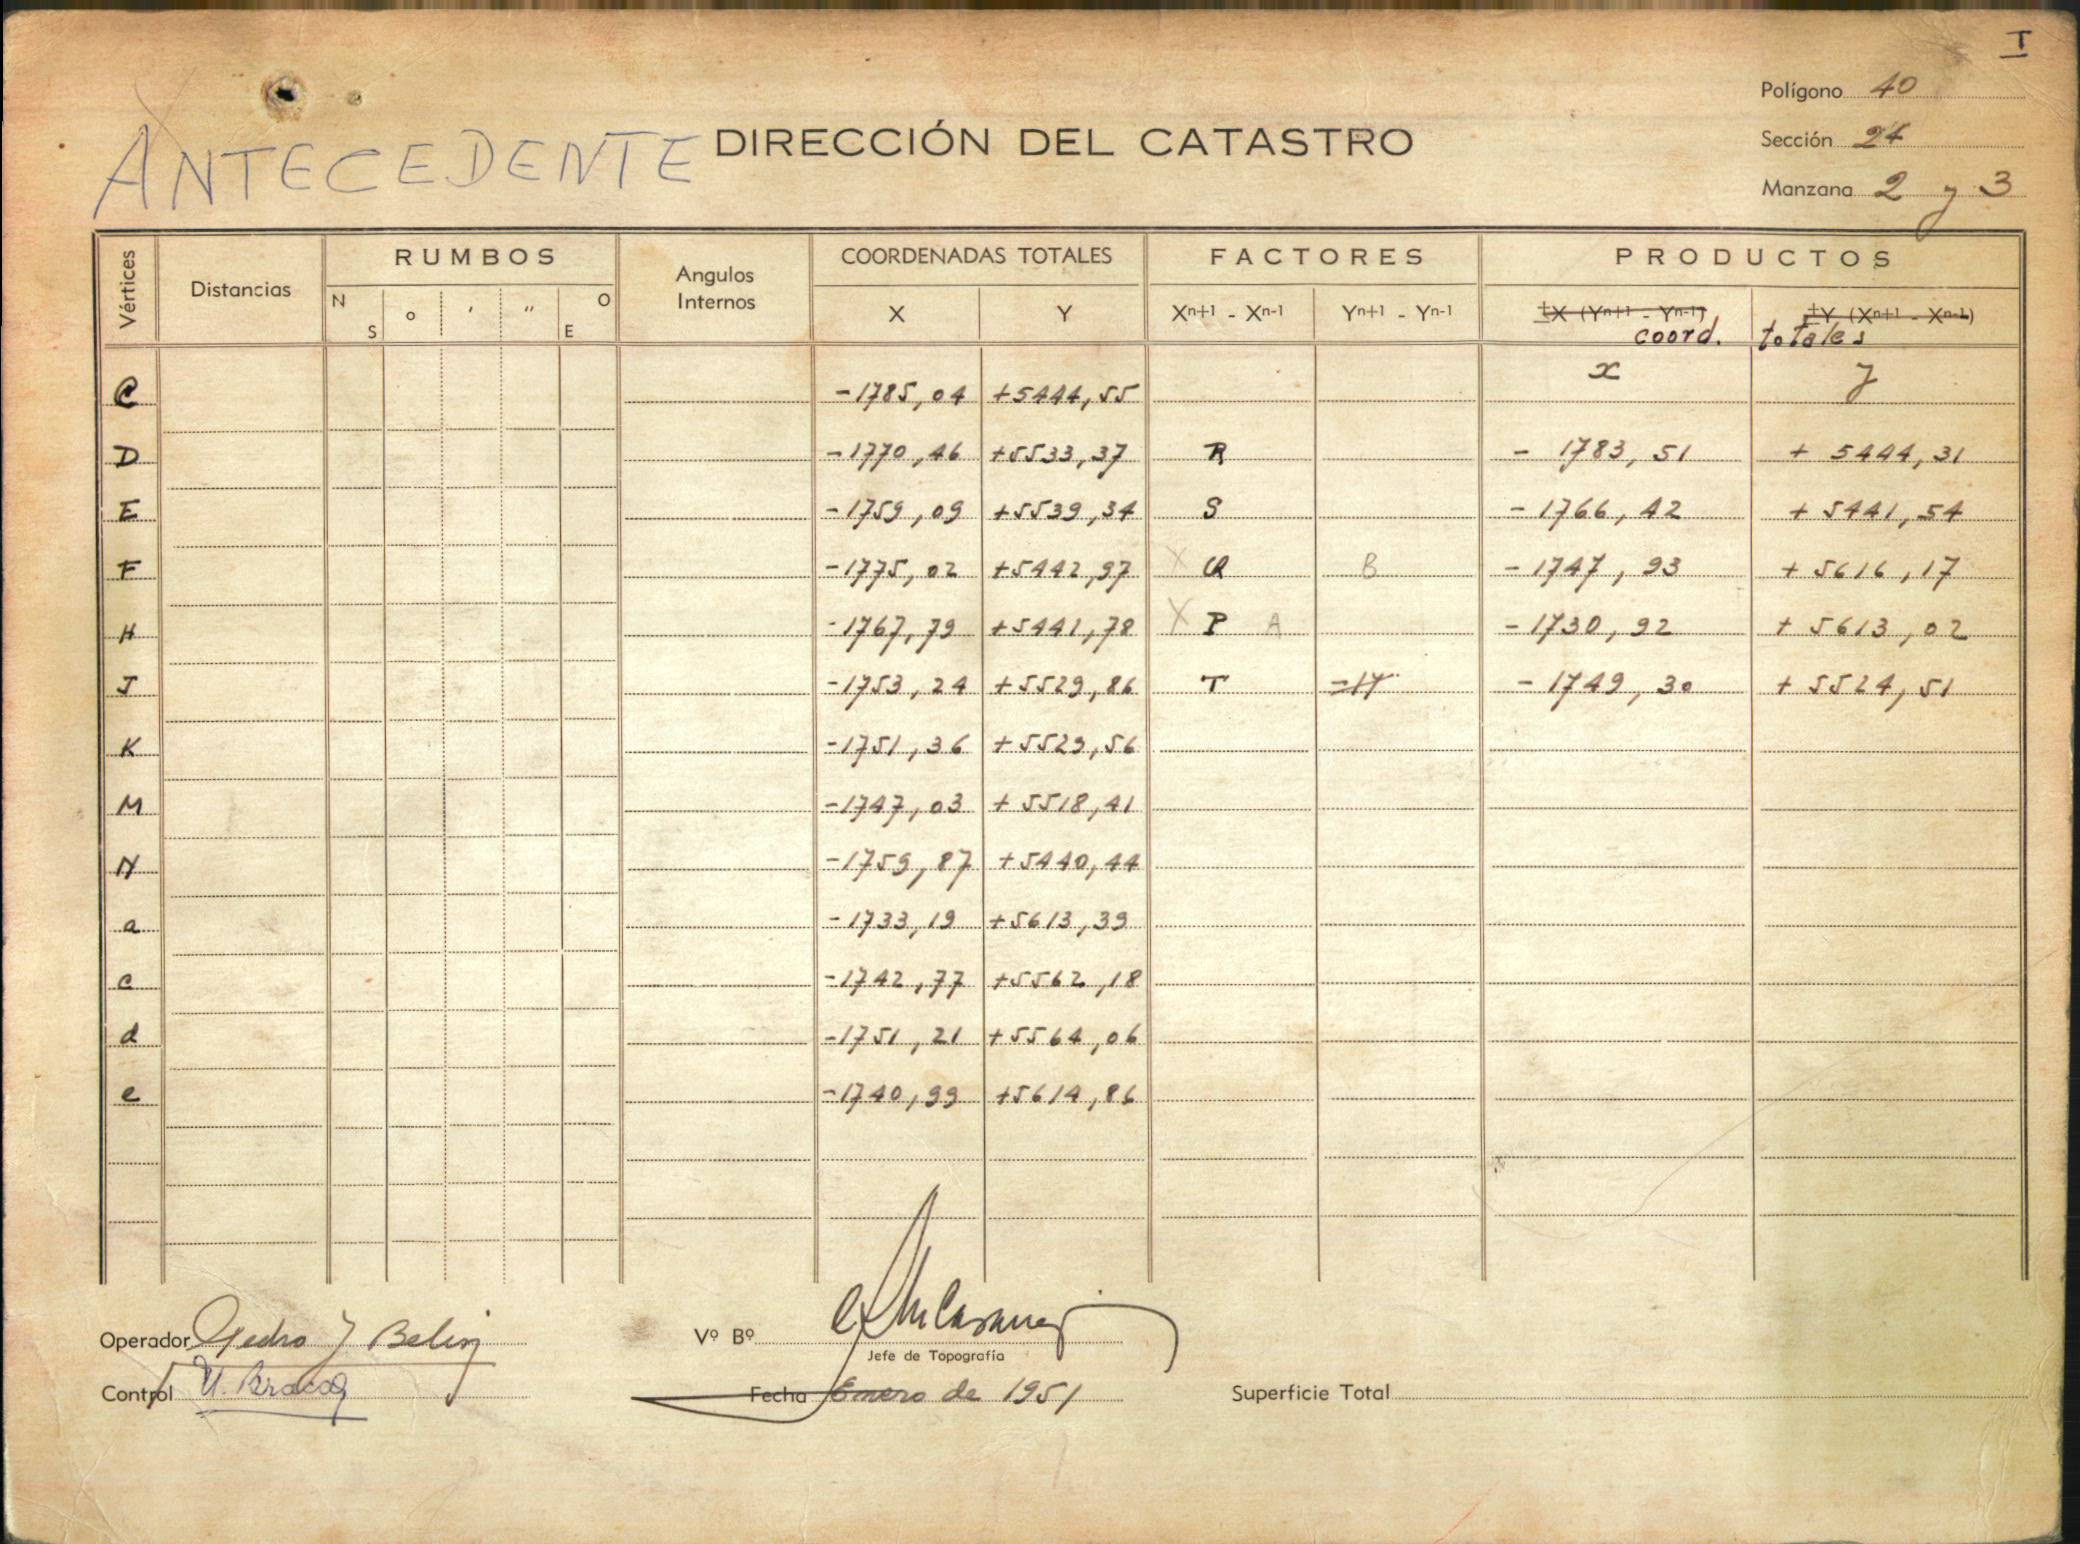 I
Polígono 40
ANTECEDENTE DIRECCIÓN DEL CATASTRO
Sección 24
Manzana 2 y 3
Vértices Distancias RUMBOS Angulos Internos COORDENADAS TOTALES FACTORES PRODUCTOS
N S o ' " O E X Y Xn+1 - Xn-1 Yn+1 - Yn-1 ±X (Yn+1 - Yn-1) ±Y (Xn+1 - Xn-1)
coord. totales
x y
C -1785,04 +5444,55
D -1770,46 +5533,37 R - 1783,51 + 5444,31
E -1759,09 +5539,34 S - 1766,42 + 5441,54
F -1775,02 +5442,97 X Q B - 1747,93 + 5616,17
H -1767,79 +5441,78 X P A - 1730,92 + 5613,02
J -1753,24 +5529,86 T -17 - 1749,30 + 5524,51
K -1751,36 +5529,56
M -1747,03 +5518,41
N -1759,87 +5440,44
a -1733,19 +5613,39
c -1742,77 +5562,18
d -1751,21 +5564,06
e -1740,99 +5614,86
Operador Pedro J Belin
Vº Bº
Jefe de Topografía
Control
Fecha Enero de 1951
Superficie Total